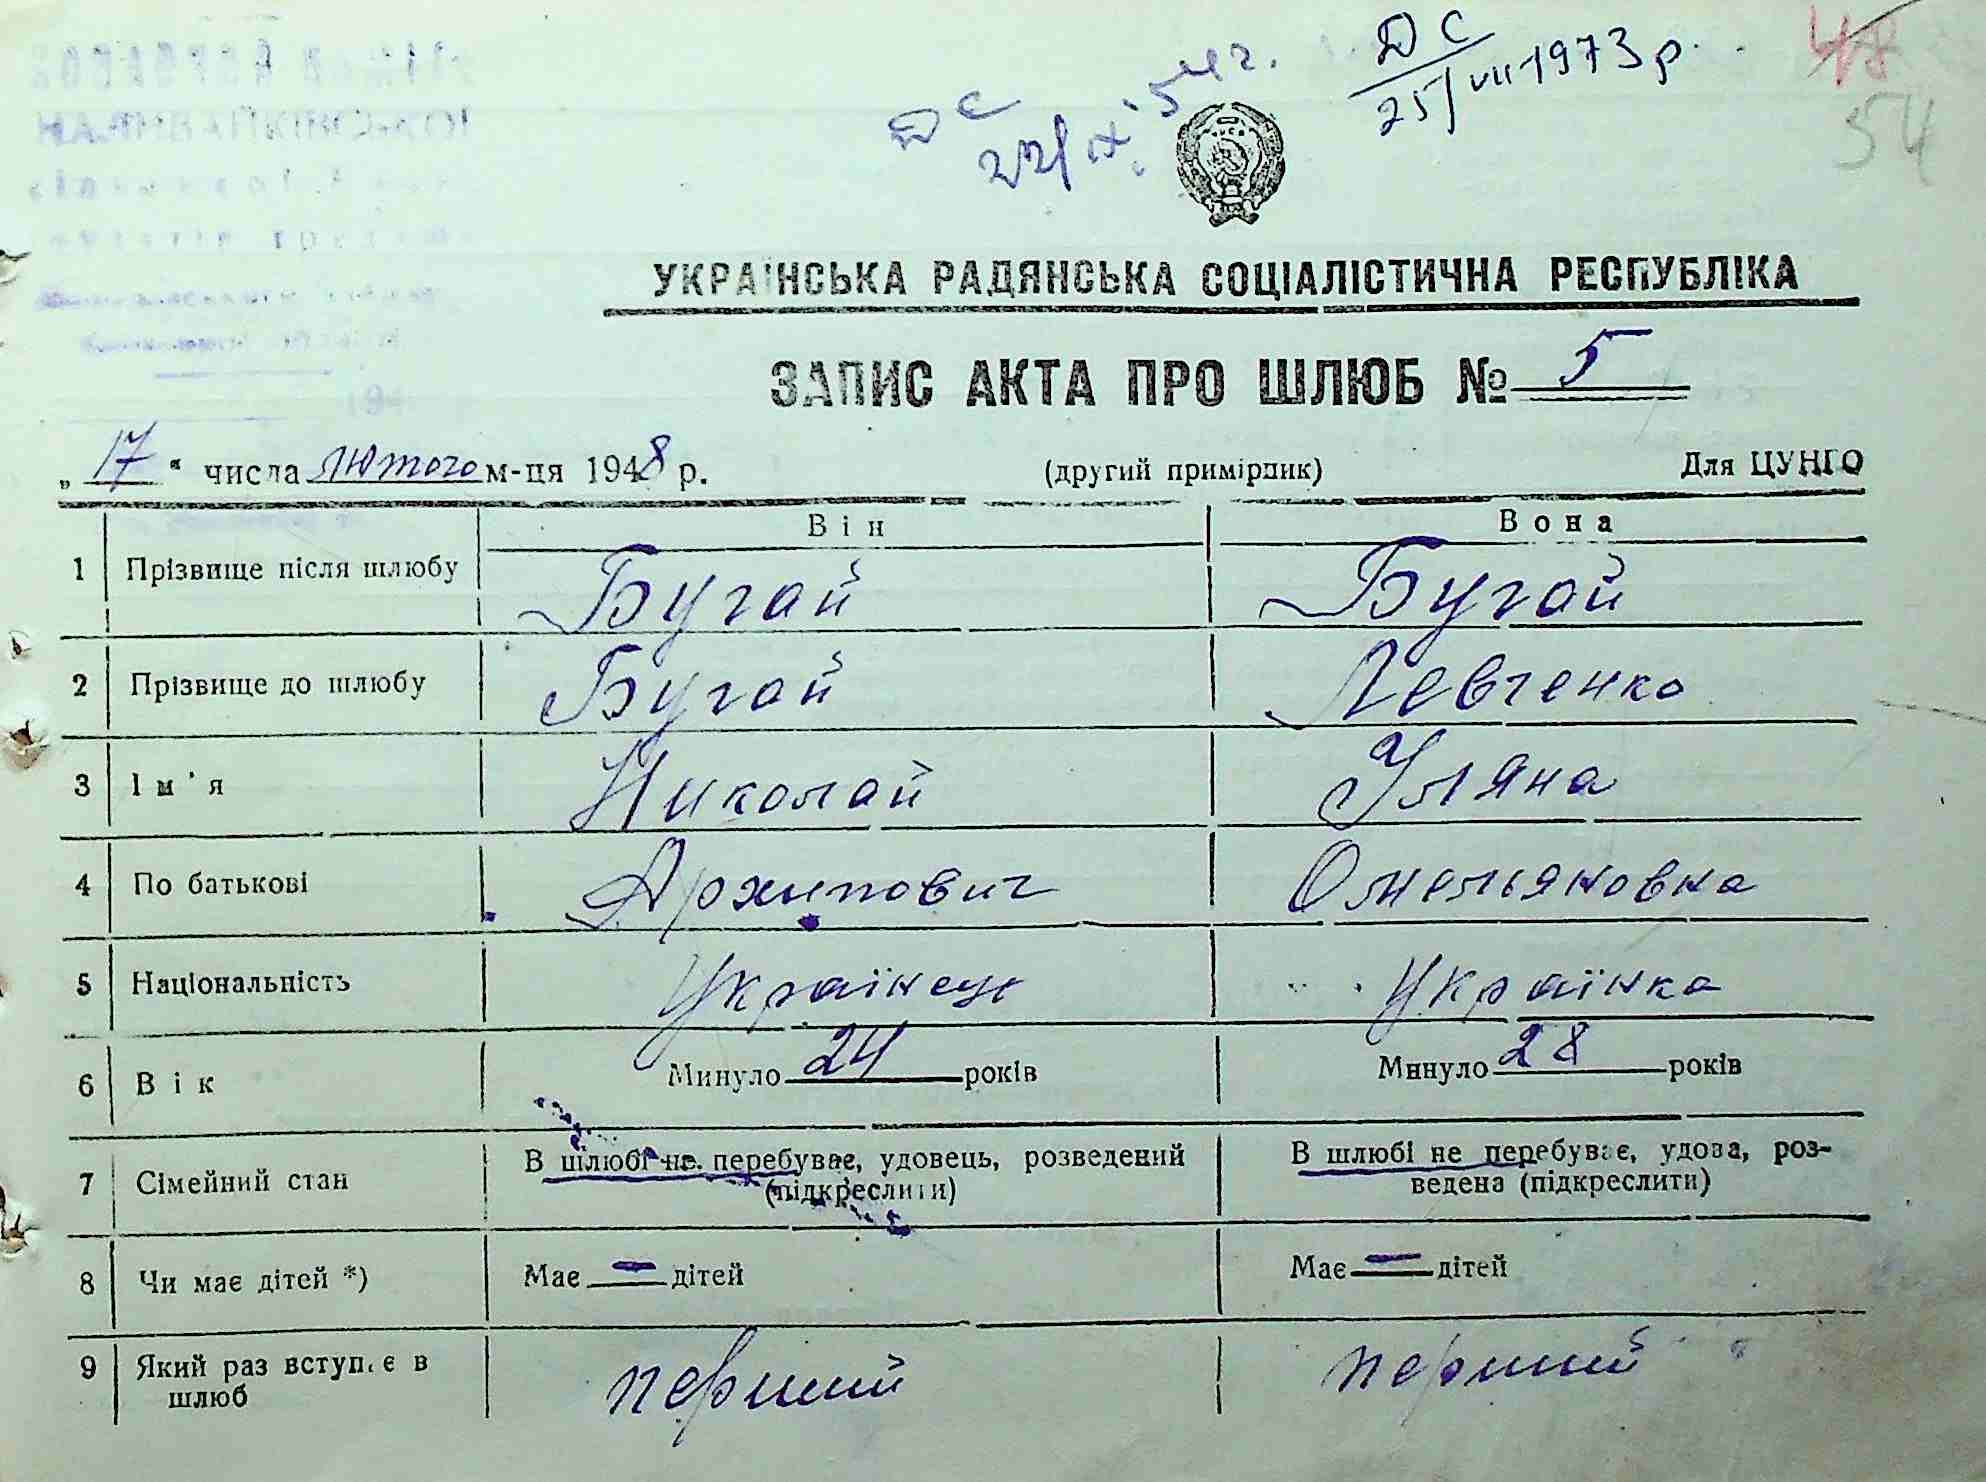 ДС
25/VII-1973 р.
ДС
22/IX
54
УКРАЇНСЬКА РАДЯНСЬКА СОЦІАЛІСТИЧНА РЕСПУБЛІКА
ЗАПИС АКТА ПРО ШЛЮБ № 5
„ 17 “ числа лютого м-ця 1948 р. (другий примірник) Для ЦУНГО
Він Вона
1 Прізвище після шлюбу Бугай Бугай
2 Прізвище до шлюбу Бугай Левченко
3 Ім'я Николай Уляна
4 По батькові Архипович Омельяновна
5 Національність Українець Українка
6 Вік Минуло 24 років Минуло 28 років
7 Сімейний стан В шлюбі не перебуває, удовець, розведений (підкреслити) В шлюбі не перебуває, удова, роз-
ведена (підкреслити)
8 Чи має дітей *) Має — дітей Має — дітей
9 Який раз вступає в шлюб перший перший